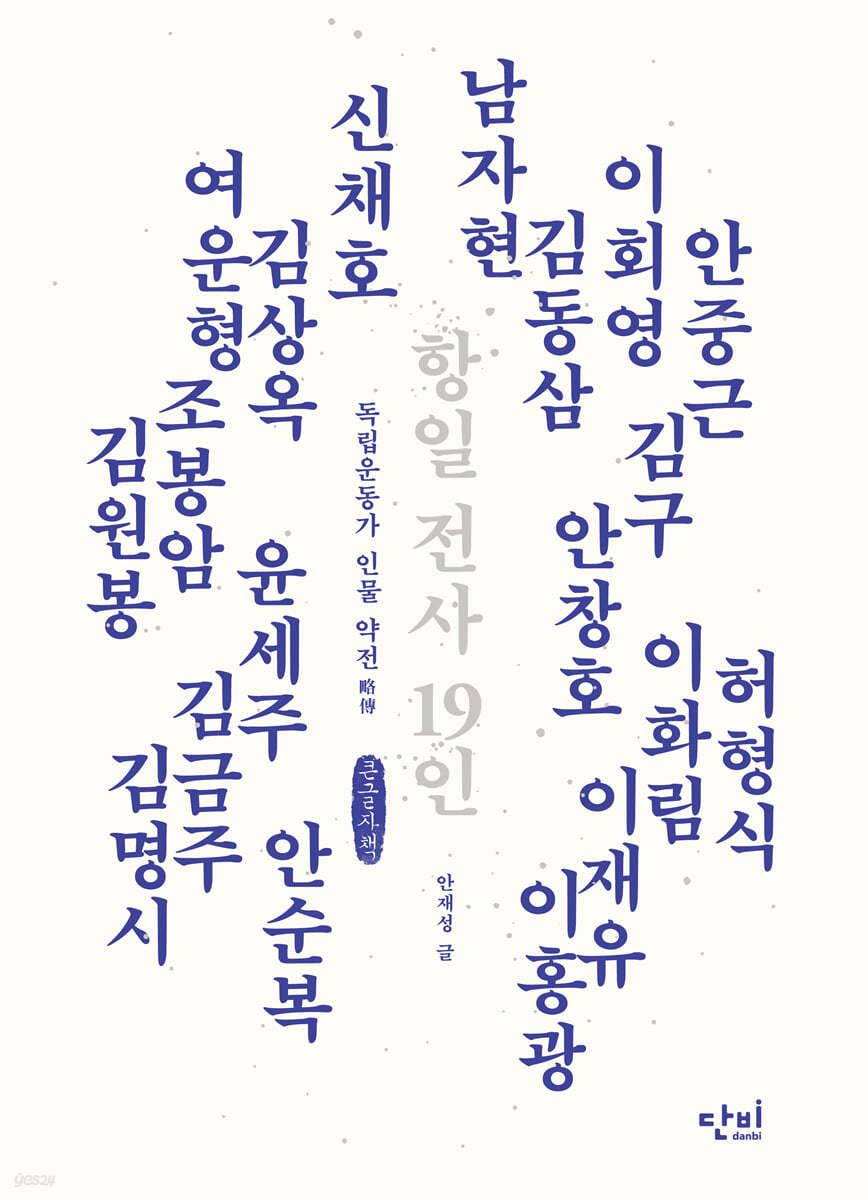 안중근
이회영
김구
김동삼
남자현
안창호
허형식
이화림
이재유
이홍광
항일 전사 19인
안재성 글
독립운동가 인물 약전 略傳
큰글자책
신채호
김상옥
여운형
조봉암
김원봉
윤세주
김금주
김명시
안순복
단비
danbi
yes24